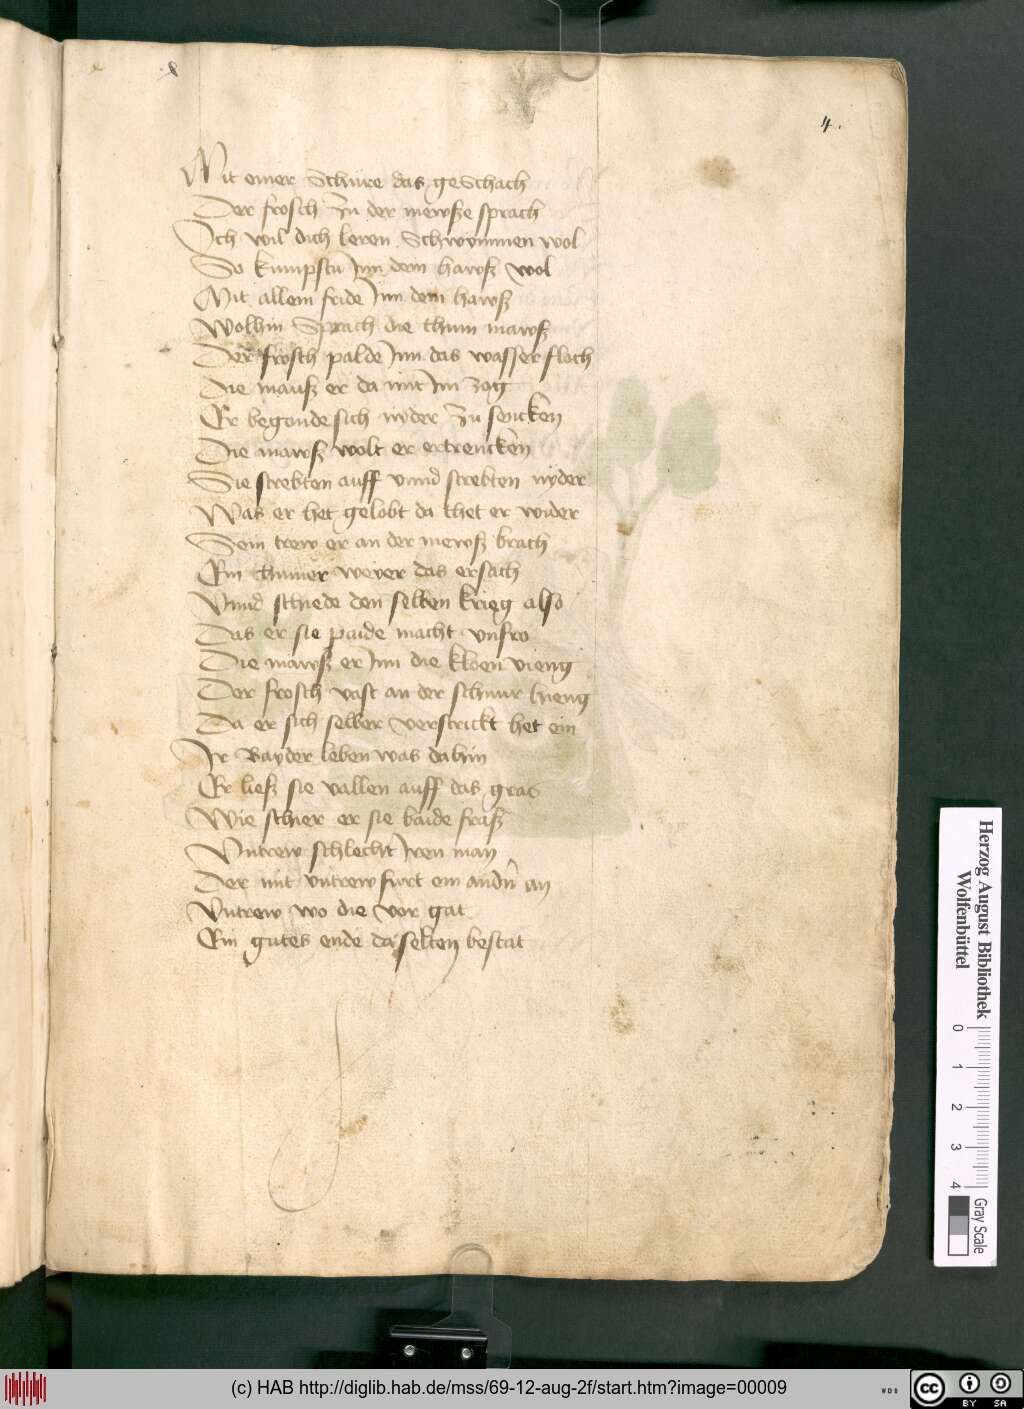 4.
Mit einer Schnure das geSchach
Der frosch Zu der mewsze sprach
Ich wil dich leren Schwymmen wol
So kumpstu Inn dem hawsz wol
Mit allem fride Inn dem hawsz
Wolhin Sprach die thum mawsz
Der frosch palde Inn das wasser floch
Die mausz er da mit Im zog
Er begonde sich nyder Zu sencken
Die mawsz wolt er ertrencken
Sie strebten auff vnnd strebten nyder
Was er het gelobt da thet er wider
Sein trew er an der mewsz brach
Ein thumer weyer das ersach
Vnnd schiede den selben krieg also
Das er sie paide macht vnfro
Die mawsz er Inn die kloen vieng
Der frosch vast an der schnur hieng
Da er sich selber verstrickt het ein
Ir Bayder leben was dahin
Er liesz sie vallen auff das gras
Wie schier er sie baide frasz
Vntrew schlecht Iren man
Der mit vntrew furt ein andn an
Vntrew wo die vor gat
Ein gutes ende da selten bestat
Herzog August Bibliothek
Wolfenbüttel
0 1 2 3 4
Gray Scale
(c) HAB http://diglib.hab.de/mss/69-12-aug-2f/start.htm?image=00009
cc BY SA